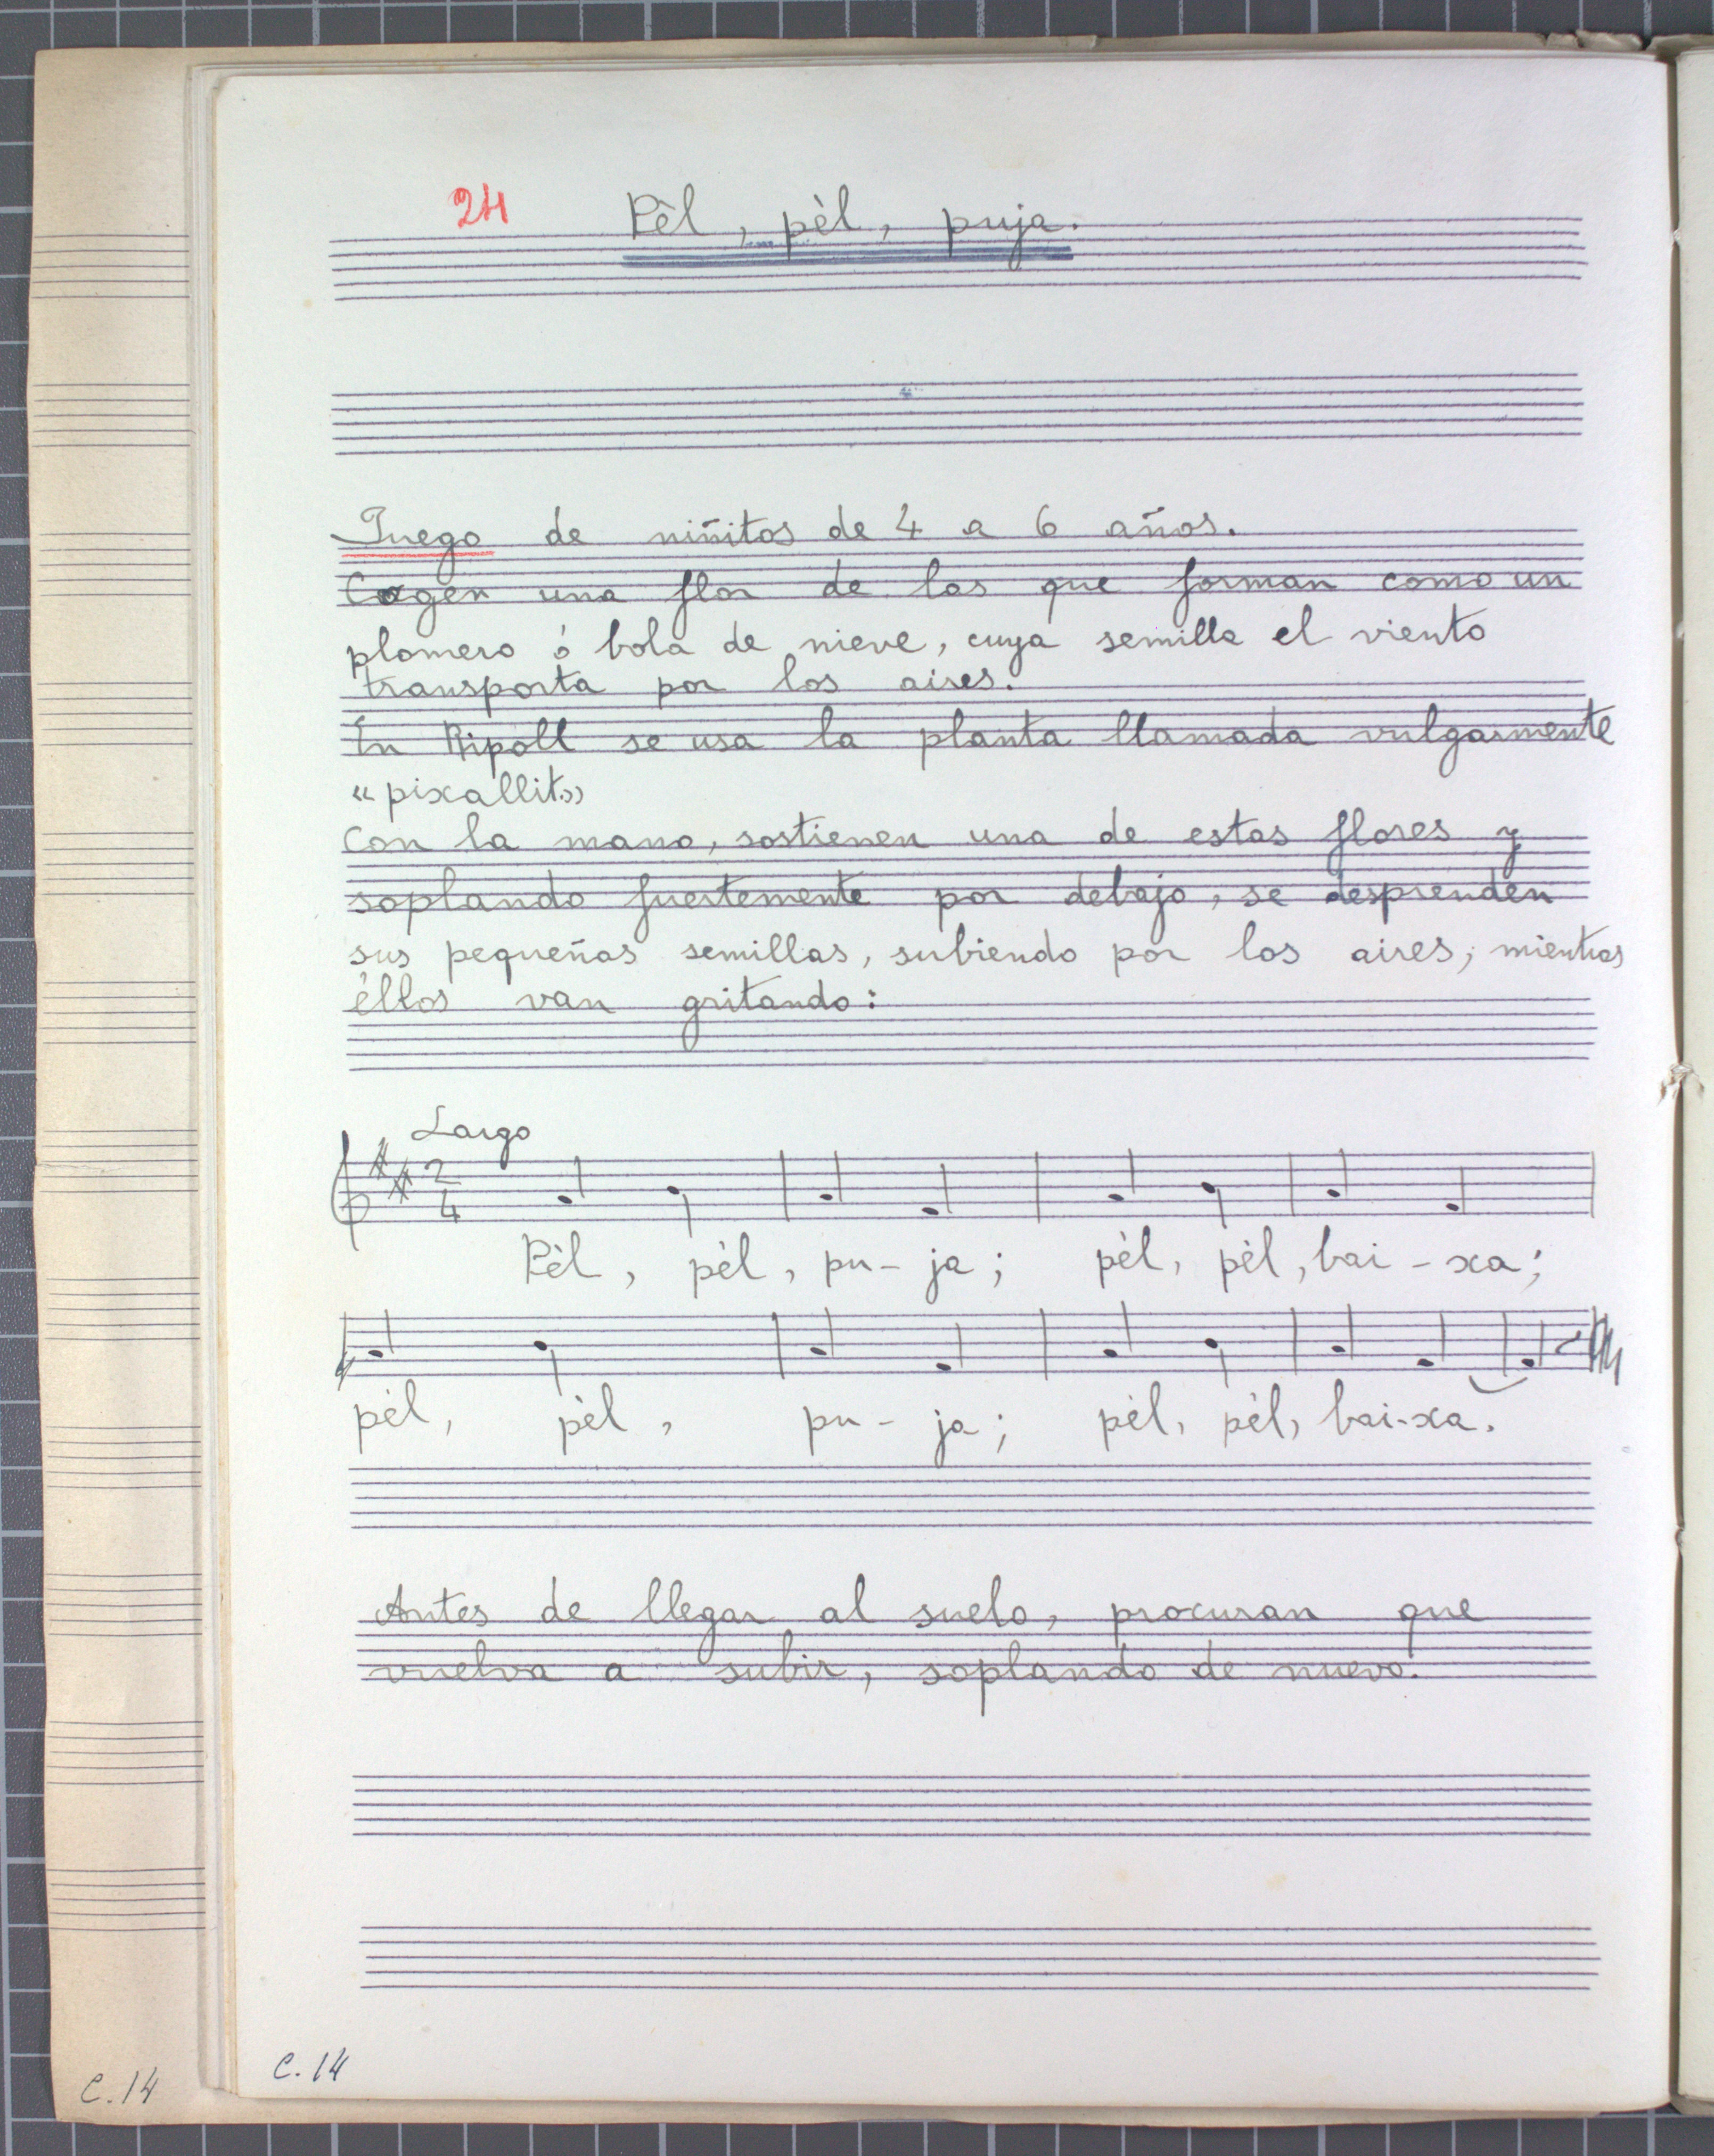 24 Pèl, pèl, puja.
Juego de niñitos de 4 a 6 años.
Cogen una flor de las que forman como un
plomero ó bola de nieve, cuya semilla el viento
transporta por los aires.
En Ripoll se usa la planta llamada vulgarmente
«pixallit»
Con la mano, sostienen una de estas flores y
soplando fuertemente por debajo, se desprenden
sus pequeñas semillas, subiendo por los aires; mientras
éllos van gritando:
Largo
2
4
Pèl, pèl, pu-ja; pèl, pèl, bai-xa;
pèl, pèl, pu-ja; pèl, pèl, bai-xa.
Antes de llegar al suelo, procuran que
vuelva a subir, soplando de nuevo.
C.14
C.14